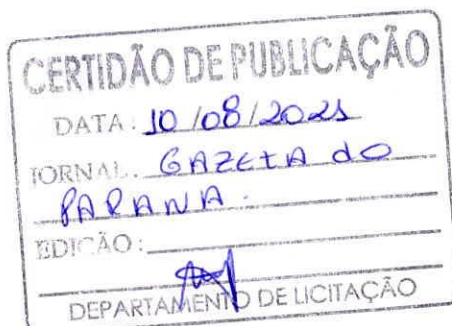 CERTIDÃO DE PUBLICAÇÃO
DATA: 10/08/2021
JORNAL: GAZETA do
PARANA.
EDIÇÃO:
DEPARTAMENTO DE LICITAÇÃO